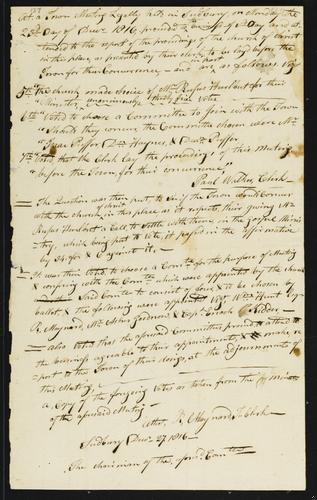 At a Town Meeting Legally held in Sudbury on Monday the
23d Day of Decr 1816, proceeded to business of the Day and at-
tended to the report of the proceedings of the church of Christ
in this place, as presented by their clerk to be lay'd before the
Town for their Concurrence, and in part are as follows, viz
5th the church made choice of Mr. Rufus Hurlbut for their
"Minister, unanimously thirty five votes
6th Voted to choose a Committee to Join with the Town
"should they concur, the Committee chosen were Mr
"Isaac Puffer Dea. Haynes, & Dean Puffer
7th Voted that the Clerk lay the proceedings of this Meeting
"before the Town for their concurrence"
Paul Walker, Clerk
The Question was then put to see if the Town would Concur
with the church in this place as it respects, their giving Mr
Rufus Hurlbut a Call to settle with them in the gospel Minis-
try, which being put to vote, it passed in the affirmative
by 54 for & against it
It was then Voted to choose a Comtee for the purpose of Meeting
& confering with the Comtee which were appointed by the church
Said Comtee to consist of four & to be chosen by
ballot & the following were appointed Wm Hunt Esqr
R. Maynard, Mr. Asher Goodnow & Capt
also Voted that the aforesaid Committee proceed to attend to
the business agreable to their appointments, & make re-
port to the Town of their doings, at the adjournment of
this Meeting
a Copy of the foregoing Votes as taken from the minutes
of the aforesaid Meeting
Attes, R. Maynard T. Clerk
Sudbury Decr 27 1816
The chairman of the aforsd Comtee